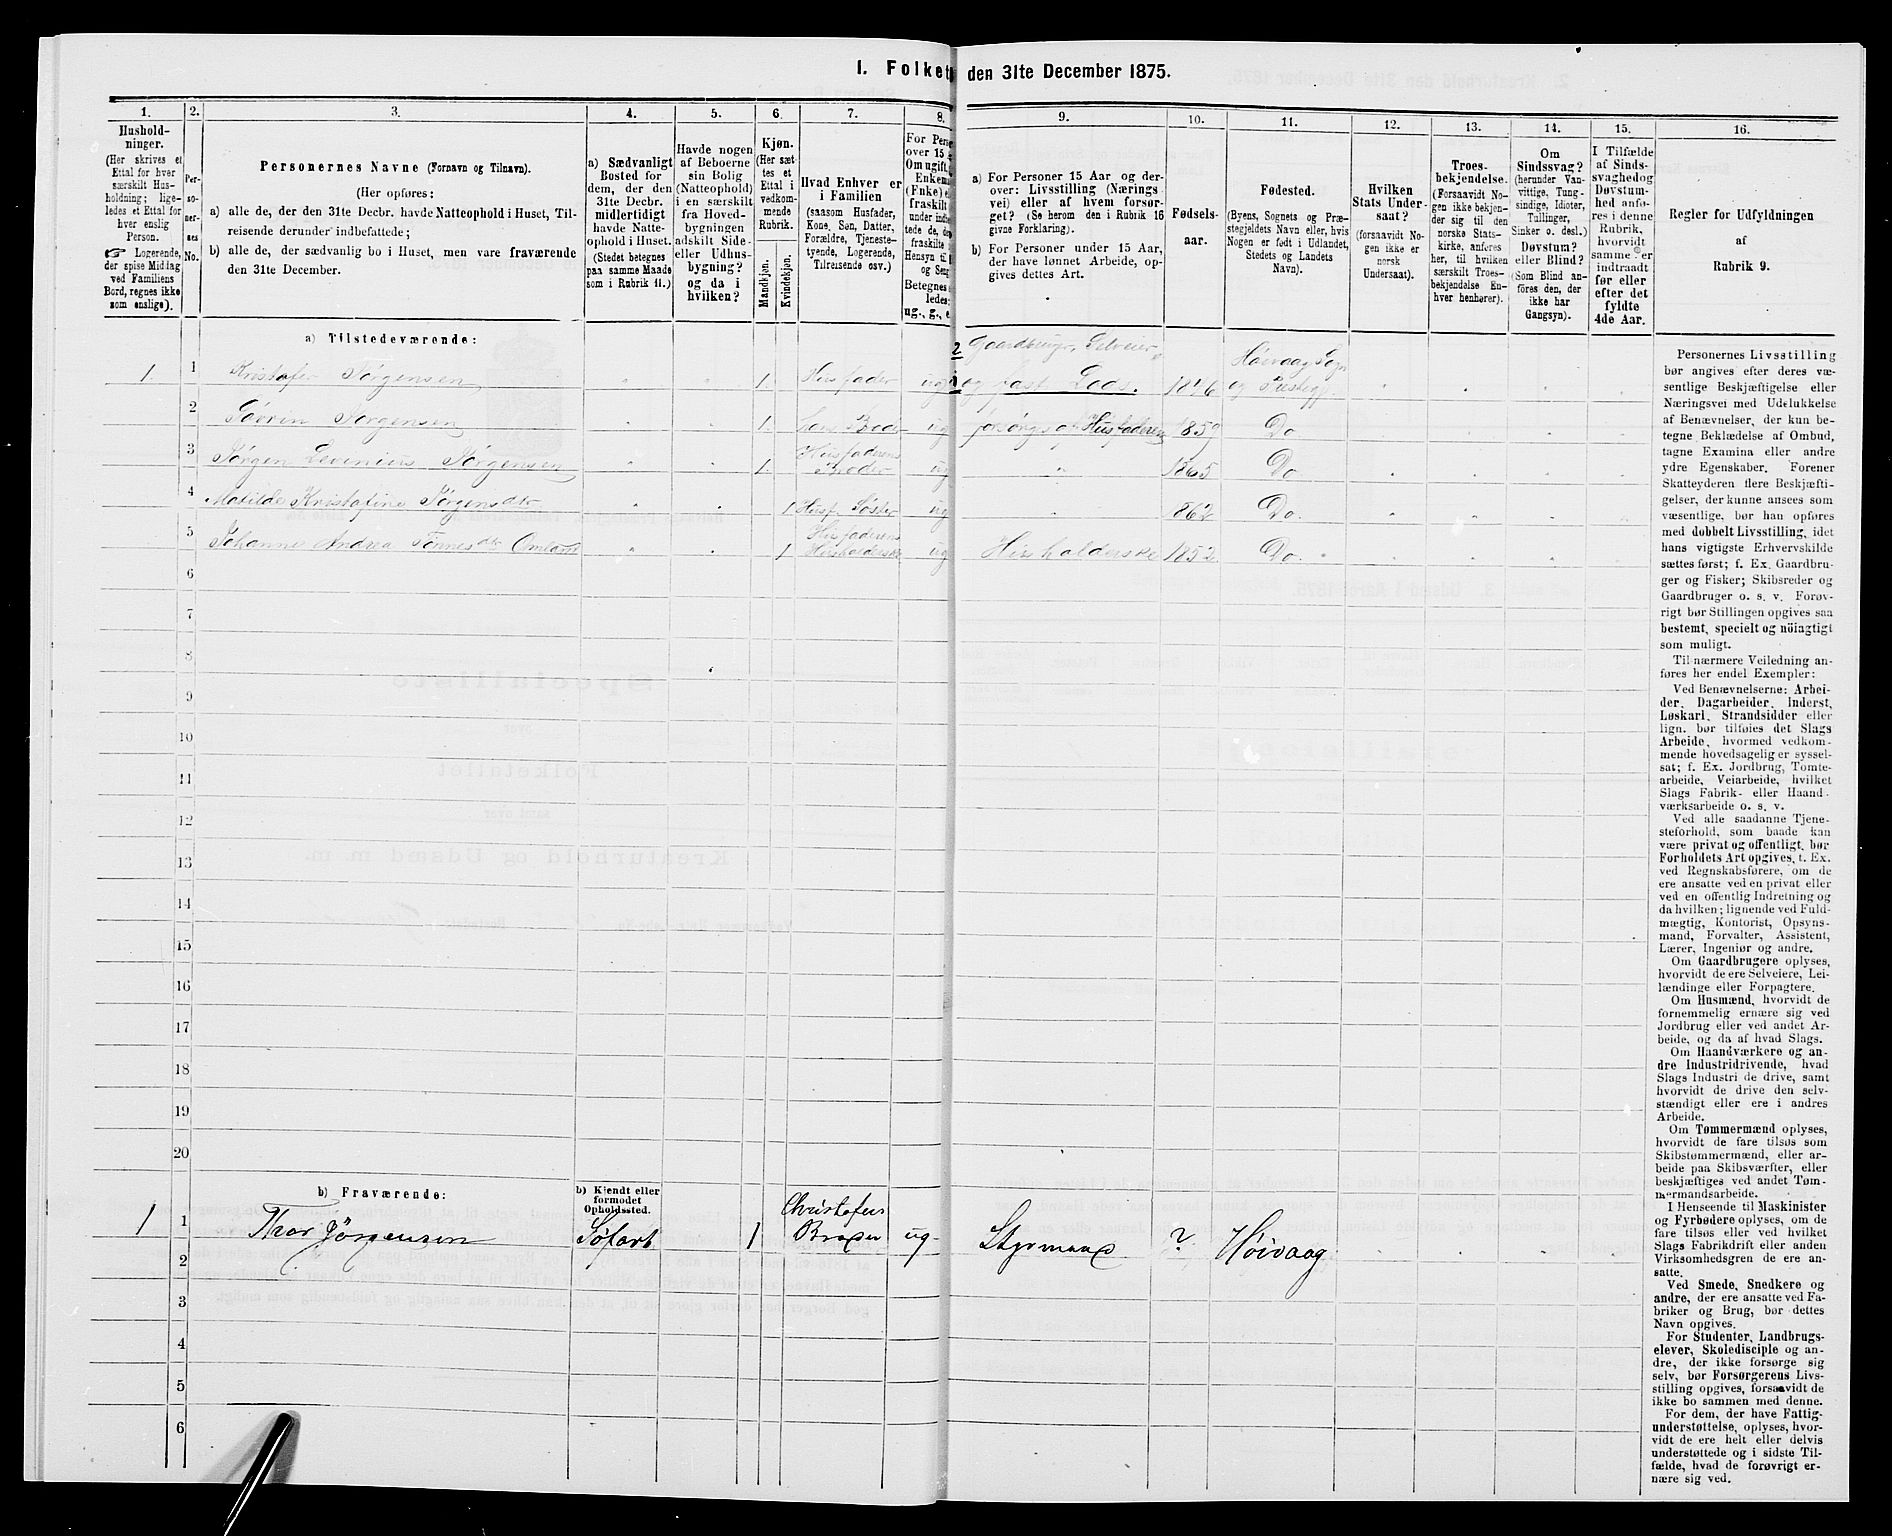 I. Folket
den 31te December 1875.
1.
Hushold-
ninger.
(Her skrives et
Ettal for hver
særskilt Hus-
holdning; lige-
ledes et Ettal for
hver enslig
Person.
☞ Logerende,
der spise Middag
ved Familiens
Bord, regnes ikke
som enslige).
2.
Per-
so-
ner-
nes
No.
3.
Personernes Navne (Fornavn og Tilnavn).
(Her opføres:
a) alle de, der den 31te Decbr. havde Natteophold i Huset, Til-
reisende derunder indbefattede;
b) alle de, der sædvanlig bo i Huset, men vare fraværende
den 31te December.
4.
a) Sædvanligt
Bosted for
dem, der den
31te Decbr.
midlertidigt
havde Natte-
ophold i Huset.
(Stedet betegnes
paa samme Maade
som i Rubrik 11.)
5.
Havde nogen
af Beboerne
sin Bolig
(Natteophold)
i en særskilt
fra Hoved-
bygningen
adskilt Side-
eller Udhus-
bygning?
og da i
hvilken?
6.
Kjøn.
(Her sæt-
tes et
Ettal i
vedkom-
mende
Rubrik.
Mandkjøn.
Kvindekjøn.
7.
Hvad Enhver er
i Familien
(saasom Husfader,
Kone, Søn, Datter,
Forældre, Tjeneste-
tyende, Logerende,
Tilreisende osv.)
8.
For Perse
over 15
Om ugift,
Enkem
(Fnke) e
fraskilt
under indbe
tede de, d
fraskilte
Hensyn til
og Seng
Betegnes
ledes:
ug., g., e
9.
a) For Personer 15 Aar og der-
over: Livsstilling (Nærings
vei) eller af hvem forsør-
get? (Se herom den i Rubrik 16
givne Forklaring).
b) For Personer under 15 Aar,
der have lønnet Arbeide, op-
gives dettes Art.
10.
Fødsels-
aar.
11.
Fødested.
(Byens, Sognets og Præ-
stegjeldets Navn eller, hvis
Nogen er født i Udlandet,
Stedets og Landets
Navn).
12.
Hvilken
Stats Under-
saat?
(forsaavidt No-
gen ikke er
norsk
Undersaat).
13.
Troes-
bekjendelse.
(Forsaavidt No-
gen ikke bekjen-
der sig til den
norske Stats-
kirke, anføres
her, til hvilken
særskilt Troes-
bekjendelse En-
hver henhører).
14.
Om
Sindssvag?
(herunder Van-
vittige, Tung-
sindige, Idioter,
Tullinger,
Sinker o. desl.)
Døvstum?
eller Blind?
(Som Blind an-
føres den, der
ikke har
Gangsyn).
15.
I Tilfælde
af Sinds-
svaghed og
Døvstum-
hed anfø-
res i denne
Rubrik,
hvorvidt
samme er
indtraadt
før eller
efter det
fyldte
4de Aar.
16.
Regler for Udfyldningen
af
Rubrik 9.
a) Tilstedeværende:
1. 1 Kristofer Jørgensen 1. Husfader ug 2 Gaardbruger, Selveier og fast Lods. 1846 Høivaag Sogn og Præstegj.
2 Sørrin Jørgensen 1. Hans Broder ug forsørges af Husfaderen 1859 Do
3 Jørgen Levenius Jørgensen 1. Husfaderens Broder ug " 1865 Do
4 Matilde Kristofine Jørgensdtr 1 Husf. Søster ug " 1862 Do.
5 Johanne Andrea Tønnesdtr 1 Husfaderens Husholderske ug Husholderske 1852 Do.
6
7
8
9
10
11
12
13
14
15
16
17
18
19
20
b) Fraværende:
b) Kjendt eller
formodet
Opholdssted.
1 1 Thor Jörgensen Söfart 1 Christofers Broder ug. Styrmand ? Höivaag
2
3
4
5
6
Personernes Livsstilling
bør angives efter deres væ-
sentlige Beskjæftigelse eller
Næringsvei med Udelukkelse
af Benævnelser, der kun be-
tegne Beklædelse af Ombud,
tagne Examina eller andre
ydre Egenskaber. Forener
Skatteyderen flere Beskjæfti-
gelser, der kunne ansees som
væsentlige, bør han opføres
med dobbelt Livsstilling, idet
hans vigtigste Erhvervskilde
sættes først; f. Ex. Gaardbru-
ger og Fisker; Skibsreder og
Gaardbruger o. s. v. Forøv-
rigt bør Stillingen opgives saa
bestemt, specielt og nöiagtigt
som muligt.
Til nærmere Veiledning an-
føres her endel Exempler:
Ved Benævnelserne: Arbei-
der, Dagarbeider, Inderst,
Løskarl, Strandsidder eller
lign. bør tilføies det Slags
Arbeide, hvormed vedkom-
mende hovedsagelig er syssel-
sat; f. Ex. Jordbrug, Tømte-
arbeide, Veiarbeide, hvilket
Slags Fabrik- eller Haand-
værksarbeide o. s. v.
Ved alle saadanne Tjene-
steforhold, som baade kan
være privat og offentligt, bør
Forholdets Art opgives, t. Ex.
ved Regnskabsførere, om de
ere ansatte ved en privat eller
ved en offentlig Indretning og
da hvilken; lignende ved Fuld-
mægtig, Kontorist, Opsyns-
mand, Forvalter, Assistent,
Lærer, Ingeniør og andre.
Om Gaardbrugere oplyses,
hvorvidt de ere Selveiere, Lei-
lændinge eller Forpagtere.
Om Husmænd, hvorvidt de
fornemmelig ernære sig ved
Jordbrug eller ved andet Ar-
beide, og da af hvad Slags.
Om Haandværkere og an-
dre Industridrivende, hvad
Slags Industri de drive, samt
hvorvidt de drive den selv-
stændigt eller ere i andres
Arbeide.
Om Tømmermænd oplyses,
hvorvidt de fare tilsøs som
Skibstømmermænd, eller ar-
beide paa Skibsværfter, eller
beskjæftiges ved andet Tøm-
mermandsarbeide.
I Henseende til Maskinister
og Fyrbødere oplyses, om de
fare tilsøs eller ved hvilket
Slags Fabrikdrift eller anden
Virksomhedsgren de ere an-
satte.
Ved Smede, Snedkere og
andre, der ere ansatte ved Fa-
briker og Brug, bør dettes
Navn opgives.
For Studenter, Landbrugs-
elever, Skoledisciple og an-
dre, der ikke forsørge sig
selv, bør Forsørgerens Livs-
stilling opgives, forsaavidt de
ikke bo sammen med denne.
For dem, der have Fattig-
understøttelse, oplyses, hvor-
vidt de ere helt eller delvis
understøttede og i sidste Til-
fælde, hvad de forøvrigt er-
nære sig ved.